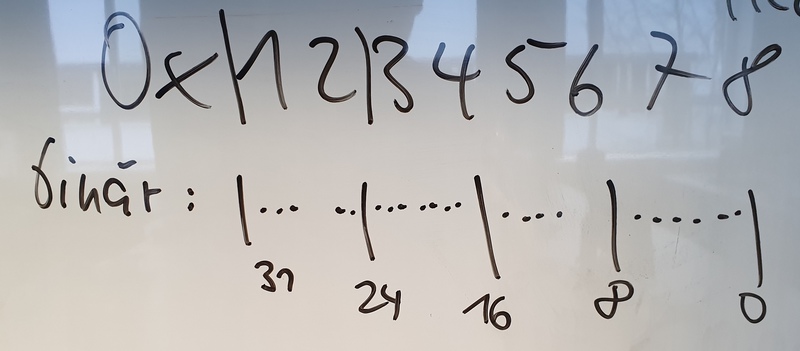 0x|12|345678
binär: |... ..|... ...|. ...|... ...|
31 24 16 8 0